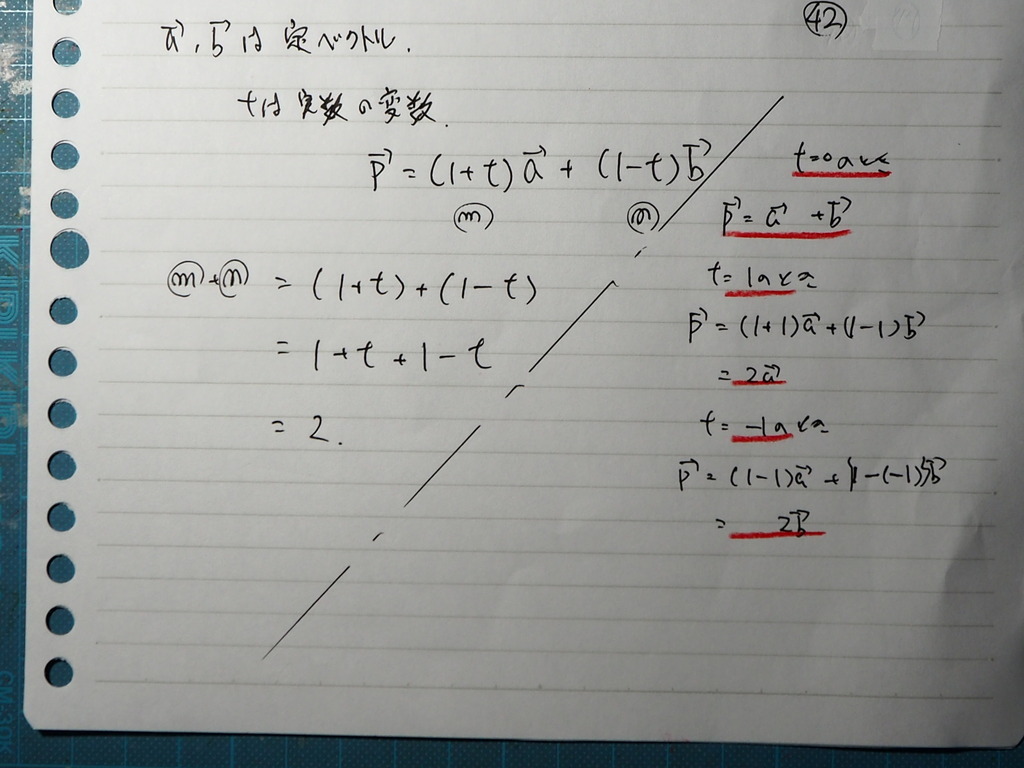 42
a→, b→ は 定ベクトル.
tは実数の変数.
p→ = (1+t)a→ + (1-t)b→
m n
m+n = (1+t)+(1-t)
= 1+t+1-t
= 2.
t=0のとき
p→ = a→ + b→
t=1のとき
p→ = (1+1)a→+(1-1)b→
= 2a→
t=-1のとき
p→ = (1-1)a→+{1-(-1)}b→
= 2b→